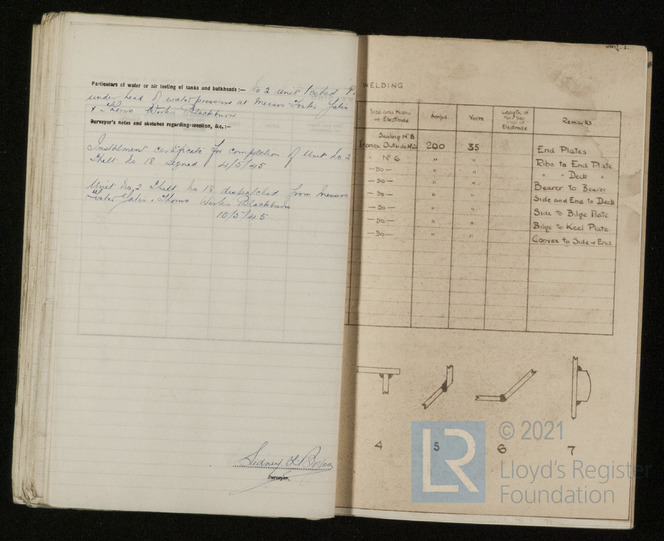 Particulars of water or air testing of tanks and bulkheads:— No 2 unit tested
under head of water pressure at Messrs Foster Yates
& Thoms Works Blackburn
Surveyor's notes and sketches regarding
Instalment certificate for completion of Unit No 2
Hull No 18 signed 4/5/45
Unit No 2 Hull No 18 despatched from Messrs
Foster Yates & Thoms Works Blackburn
10/5/45
Surveyor.
WELDING
Size and
of Electrode
Amps
Volts
Length of
Electrode
Remarks
Sealing No 8
200 35 End Plates
" No 6 " " Ribs to End Plate
— Do — " " " " Deck "
— Do — " " Bearer to Bearer
— Do — " " Side and End to Deck
— Do — " " Side to Bilge Plate
— Do — " " Bilge to Keel Plate
— Do — " " to Side & End
4 5 6 7
LR
© 2021
Lloyd's Register
Foundation